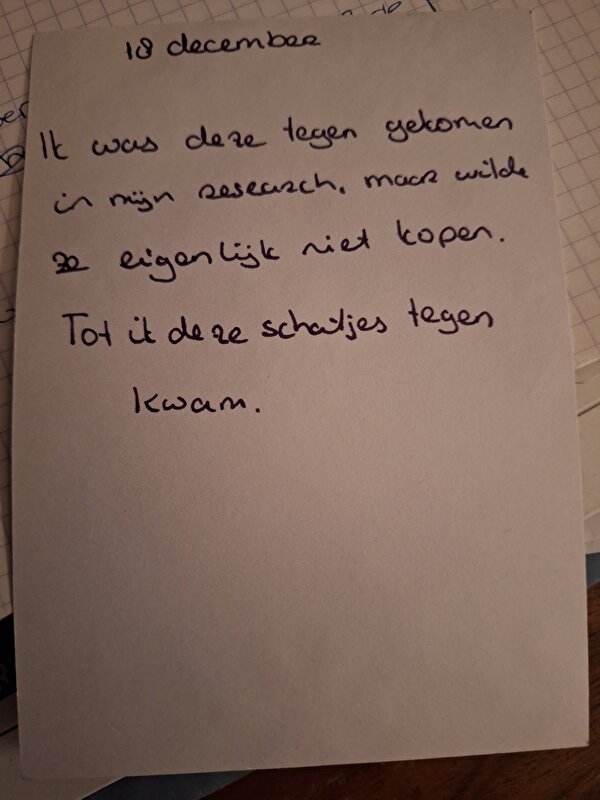 18 december
Ik was deze tegen gekomen
in mijn research, maar wilde
ze eigenlijk niet kopen.
Tot ik deze schatjes tegen
kwam.